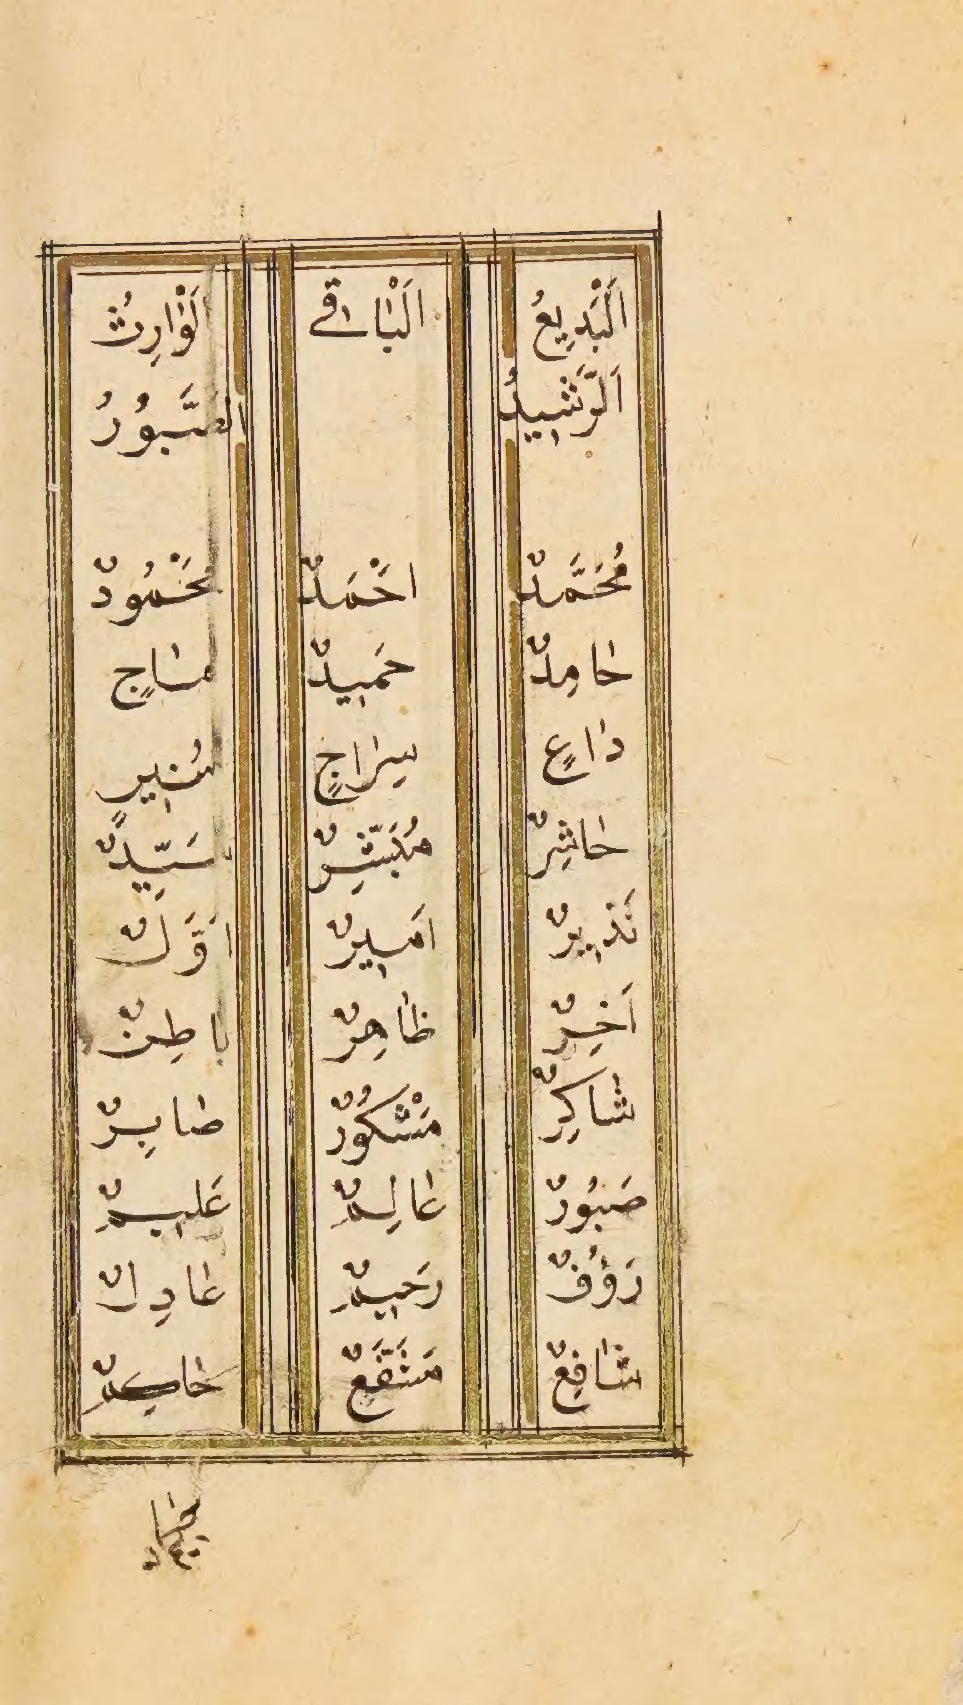 اَلْبَدِيعُ اَلْبَاقٖي اَلْوَارِثُ
اَلرَّشِيدُ اَلصَّبُورُ
مُحَمَّدٌ اَحْمَدٌ مَحْمُودٌ
حَامِدٌ حَمِيدٌ مَاحٍ
دَاعٍ سِرَاجٍ مُنِيرٍ
حَاشِرٌ مُبَشِّرٌ سَيِّدٌ
نَذِيرٌ اَمِيرٌ اَوَّلٌ
اَخِرٌ ظَاهِرٌ بَاطِنٌ
شَاكِرٌ مَشْكُورٌ صَابِرٌ
صَبُورٌ عَالِمٌ عَلِيمٌ
رَؤُفٌ رَحِيمٌ عَادِلٌ
شَافِعٌ مُشَفَّعٌ حَاكِمٌ